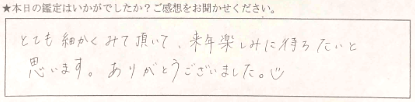 ★本日の鑑定はいかがでしたか？ご感想をお聞かせください。
とても細かくみて頂いて、来年楽しみに待ちたいと
思います。ありがとうございました。☺